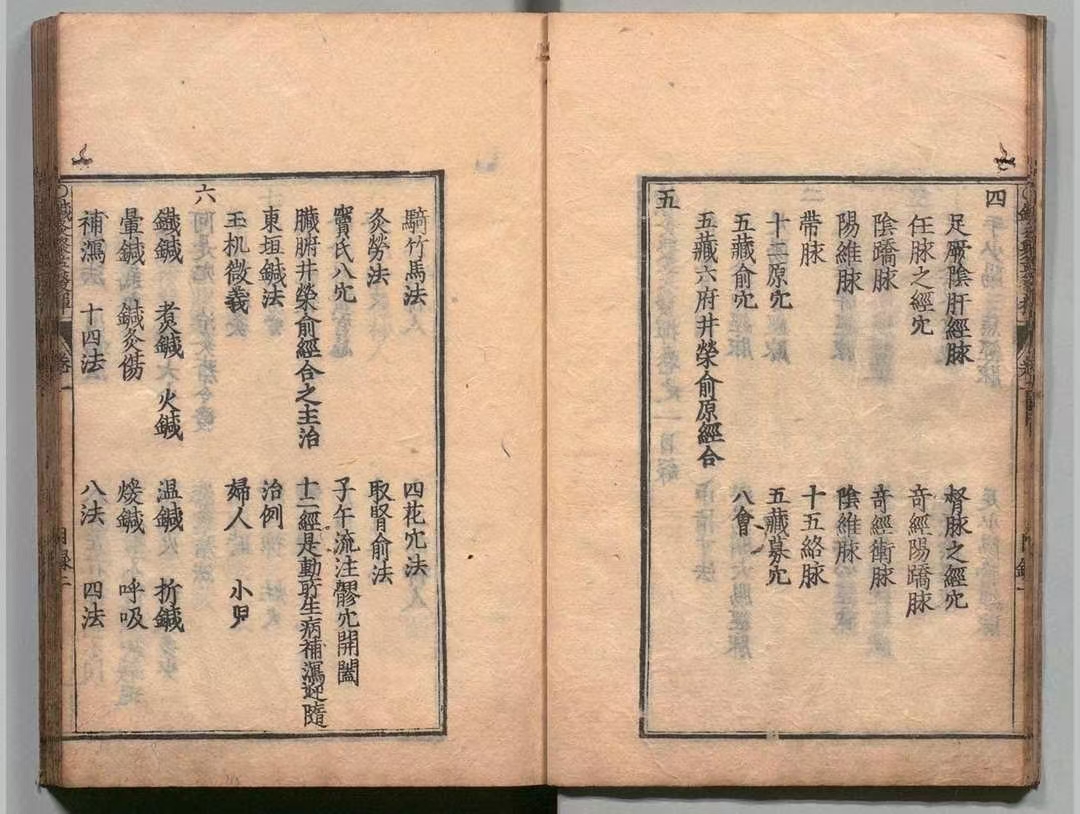 四
足厥陰肝經脉 督脉之經穴
任脉之經穴 奇經陽蹻脉
陰蹻脉 奇經衝脉
陽維脉 陰維脉
帶脉 十五絡脉
十二原穴 五藏募穴
五藏俞穴 八會
五藏六府井榮俞原經合
五
騎竹馬法 四花穴法
灸勞法 取腎俞法
竇氏八穴 子午流注髎穴開闔
臟腑井榮俞經合之主治 十二經是動所生病補瀉迎隨
東垣鍼法 治例
王机微義 婦人 小兒
六
鍼 煑鍼 火鍼 溫鍼 折鍼
暈鍼 鍼灸傷 煖鍼 呼吸
補瀉 十四法 八法 四法
卷一 目錄二